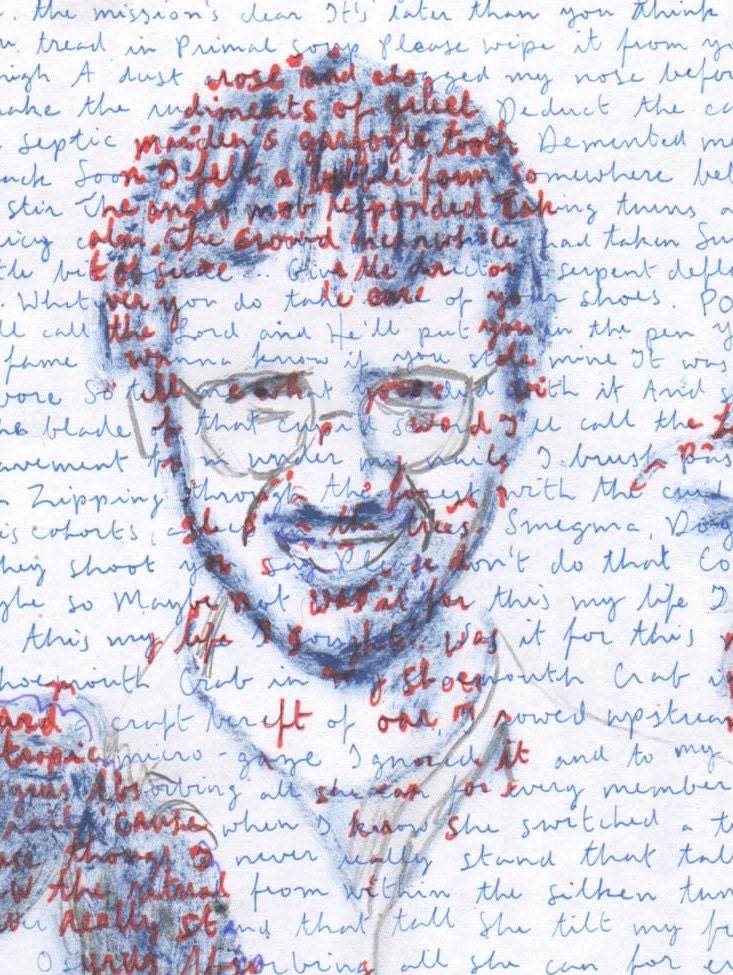 . the mission's clear It's later than you think
tread in Primal soup Please wipe it from yo
high A dust arose and clogged my nose befor
ake the rudiments of gruel Deduct the ca
septic maiden's gargoyle tooth Demented me
Soon I felt a bubble form somewhere bel
stir The angry mob responded taking turns a
icy calm The crowd meanwhile had taken
tle bit obscure... Give the director a serpent defle
. Whatever you do take care of your shoes. PO
ll call the Lord and He'll put you in the pen y
fame wanna know if you stole mine It was
So tell me what you did with it And s
he blade of that cupid sword I'll call the
avement from under my nails I brush pas
Zipping through the forest with the curd
is cohorts asleep in the trees. Smegma, Dog
they shoot you say Please don't do that Co
ybe so Maybe not Was it for this my life I
this my life I sought? Was it for this
hoemouth Crab in my Shoemouth Crab i
and a craft bereft of oar, I rowed upstream
tropic micro-gaze Ignored it and to my
Absorbing all she can for every member
'cause when I know she switched a t
though I never really stand that tall
the ritual from within the silken tun
really stand that tall She tilt my
Absorbing all she can for ev